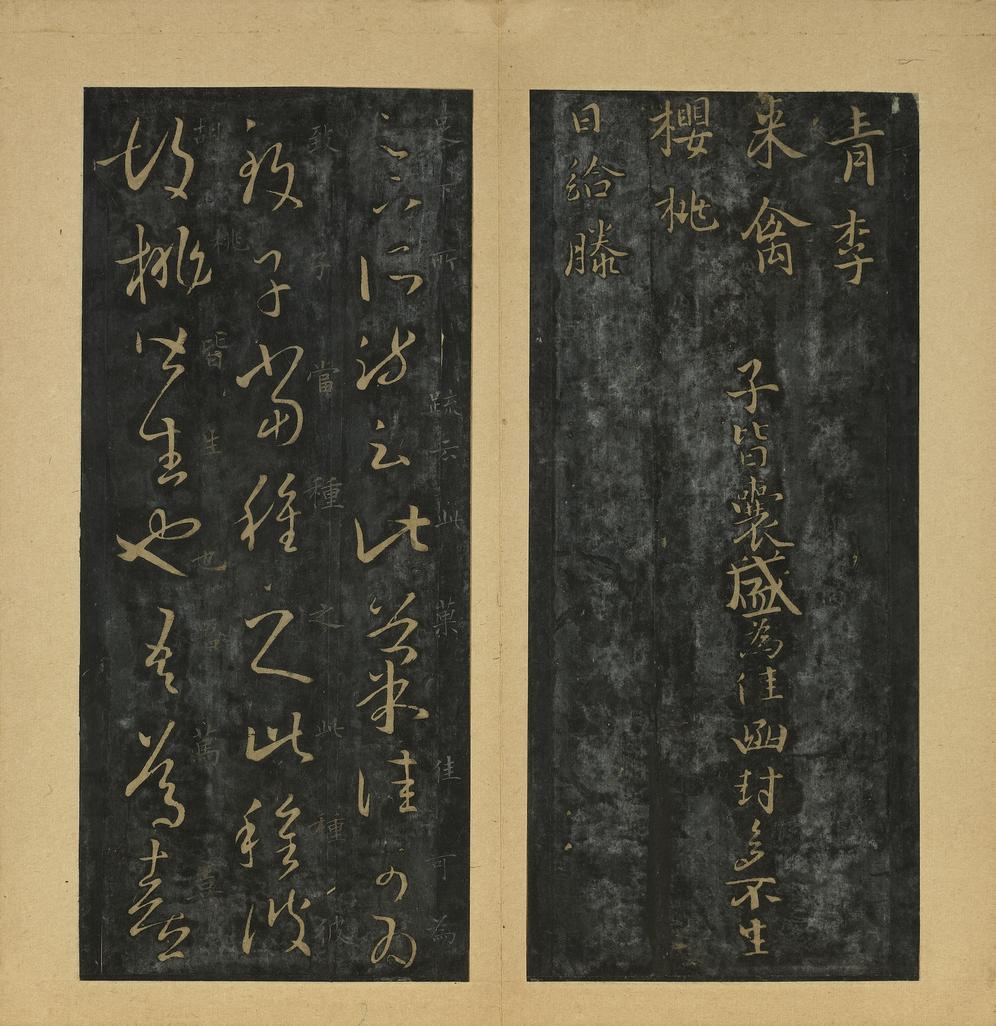 青李
来禽
櫻桃
日給滕
子皆囊盛為佳函封多不生
足下所疏云此菓佳可為
足下所疏云此菓佳可為
致子當種之此種彼
致子當種之此種彼
胡桃皆生也
胡桃皆生也吾篤喜